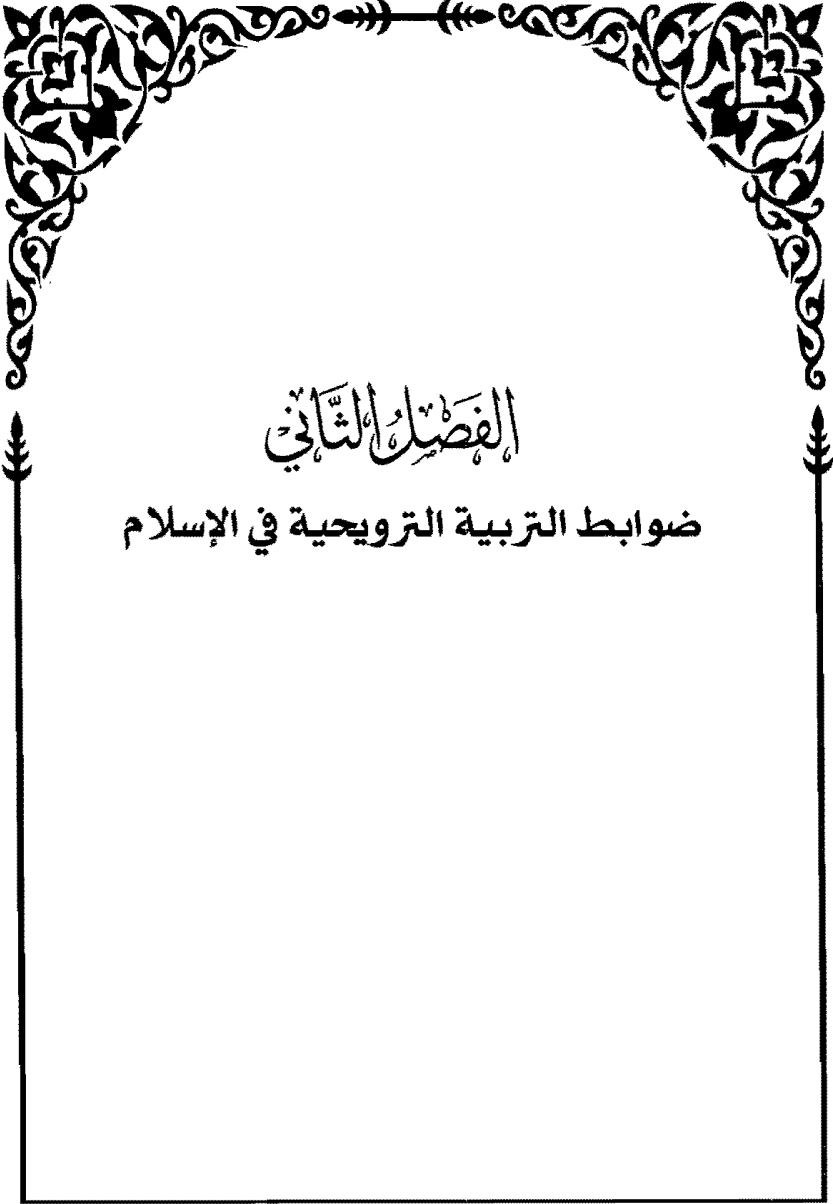 الفَصْلُ الثَّانِي
ضوابط التربية الترويحية في الإسلام